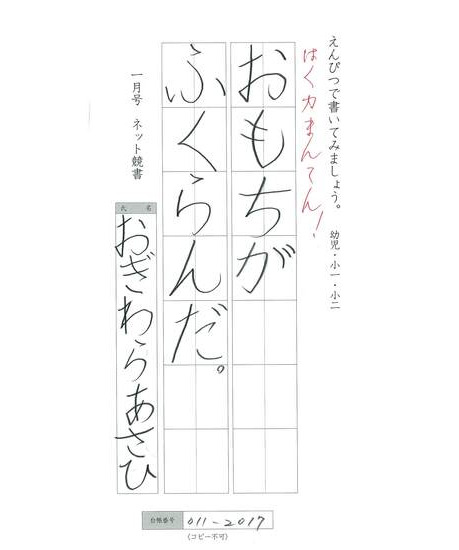 えんぴつで書いてみましょう。 幼児・小一・小二
はく力まんてん!
おもちが
ふくらんだ。
一月号 ネット競書
氏名
おぎわらあさひ
台帳番号 011-2017
(コピー不可)